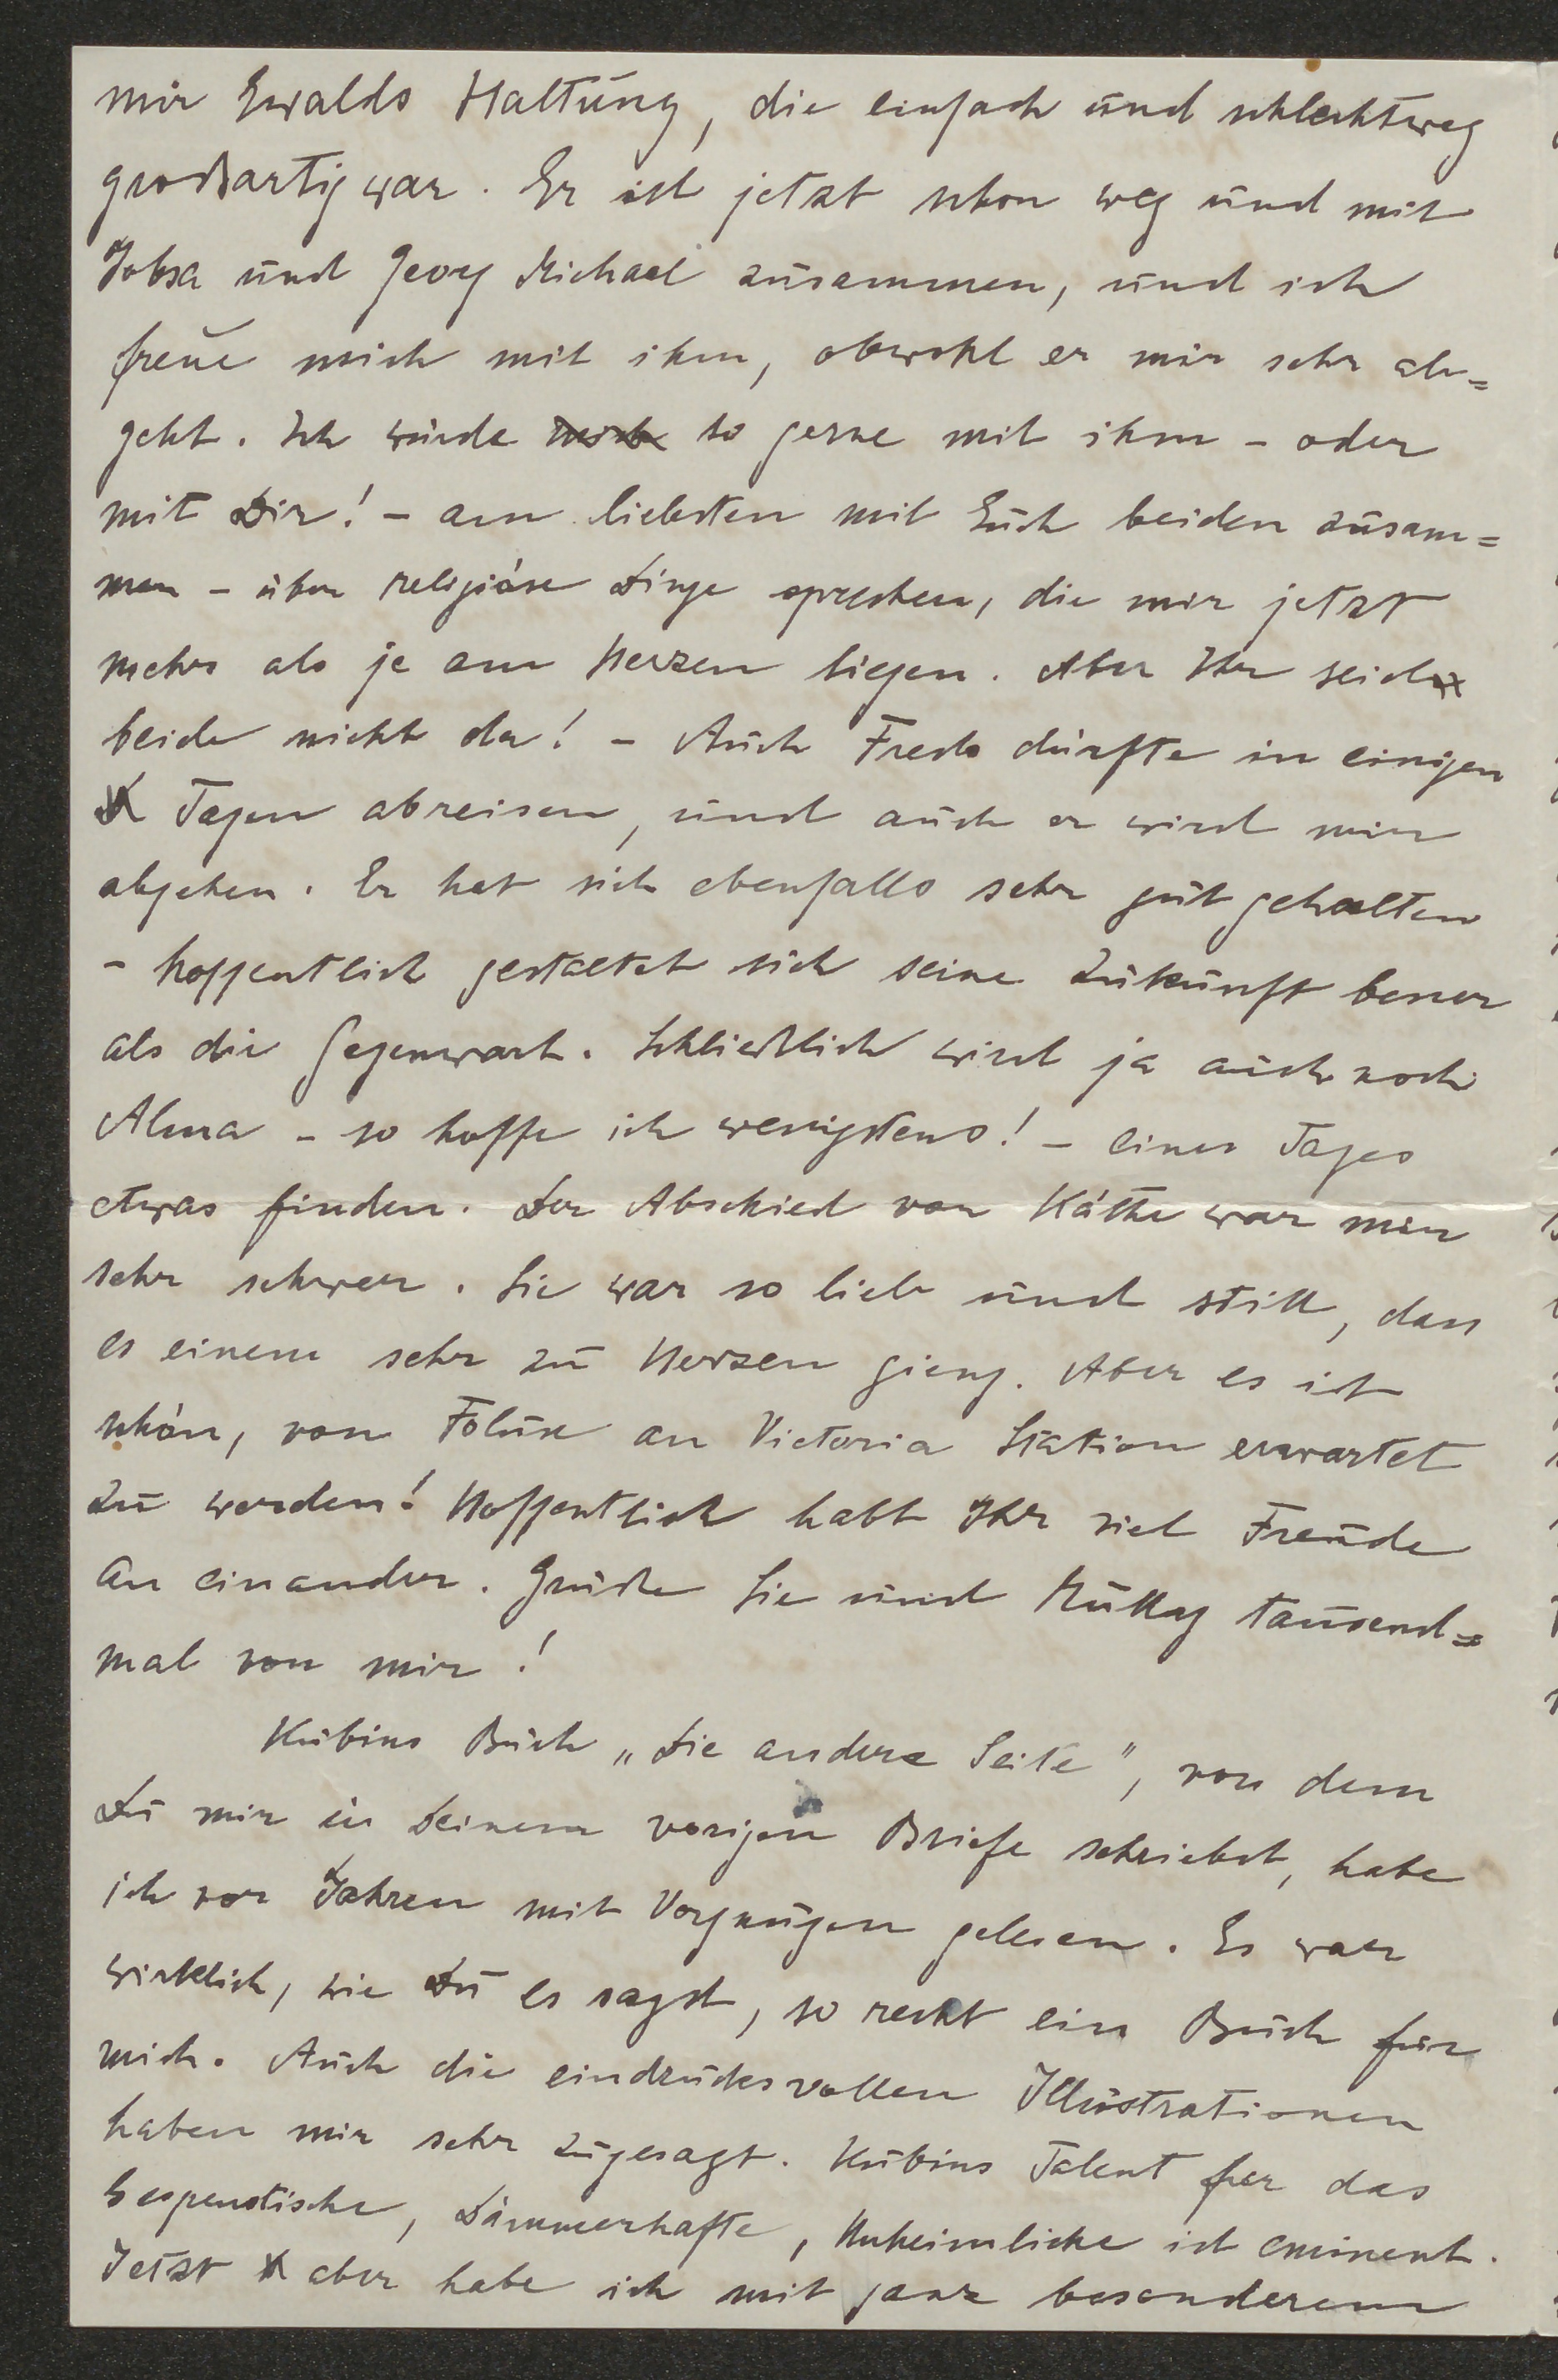 mir Ewalds Haltung, die einfach und schlechtweg
großartig war. Er ist jetzt schon weg und mit
Jobsa und Georg Michael zusammen, und ich
freue mich mit ihm, obwohl er mir sehr ab=
geht. Ich würde so gerne mit ihm – oder
mit Dir! – am liebsten mit Euch beiden zusam=
men – über religiöse Dinge sprechen, die mir jetzt
mehr als je am Herzen liegen. Aber Ihr seid
beide nicht da! – Auch Fredo dürfte in einigen
Tagen abreisen, und auch er wird mir
abgehen. Er hat sich ebenfalls sehr gut gehalten
– hoffentlich gestaltet sich seine Zukunft besser
als die Gegenwart. Schließlich wird ja auch noch
Alma – so hoffe ich wenigstens! – eines Tages
etwas finden. Der Abschied von Käthe war mir
sehr schwer. Sie war so lieb und still, dass
es einem sehr zu Herzen gieng. Aber es ist
schön, von an Victoria Station erwartet
zu werden! Hoffentlich habt Ihr viel Freude
an einander. Grüße Sie und tausend=
mal von mir!
Kubins Buch „Die andere Seite", von dem
Du mir in Deinem vorigen Briefe schriebst, habe
ich vor Jahren mit Vergnügen gelesen. Es war
wirklich, wie Du es sagst, so recht ein Buch für
mich. Auch die eindrucksvollen Illustrationen
haben mir sehr zugesagt. Kubins Talent für das
Gespenstische, Dämmerhafte, Unheimliche ist eminent.
Jetzt aber habe ich mit ganz besonderem